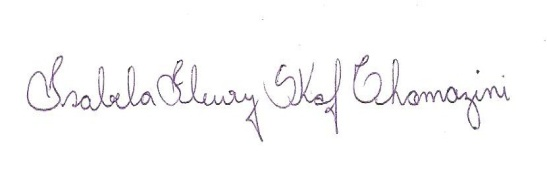 Isabela Fleury Skaf Thomazini